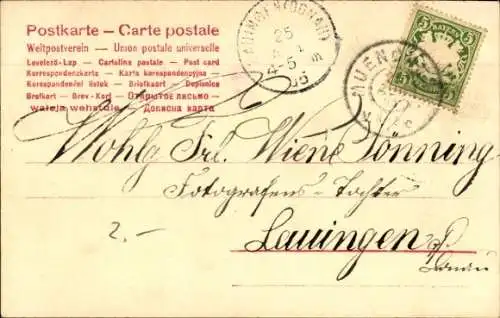 Postkarte – Carte postale
Weltpostverein – Union postale universelle
Levelező-Lap – Cartolina postale – Post card
Korrespondenzkarte – Karta korespondencyjna
Korespondenční lístek – Briefkaart – Dopisnica
Brefkort – Brev-Kort – Открытое письмо –
weleja wehstule – Дописна карта
LAUINGEN (DONAU)
25
4-5
05
5 5
BAYERN
MUENCHEN
Wohlg Frl. Wiene Pönning
Fotografens-Tochter
Lauingen
Donau
2.-